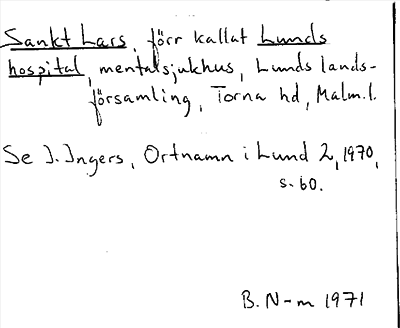 Sankt Lars, förr kallat Lunds
hospital, mentalsjukhus, Lunds lands-
församling, Torna hd, Malm.l.
Se I. Ingers, Ortnamn i Lund 2, 1970,
s. 60.
B. N-m 1971